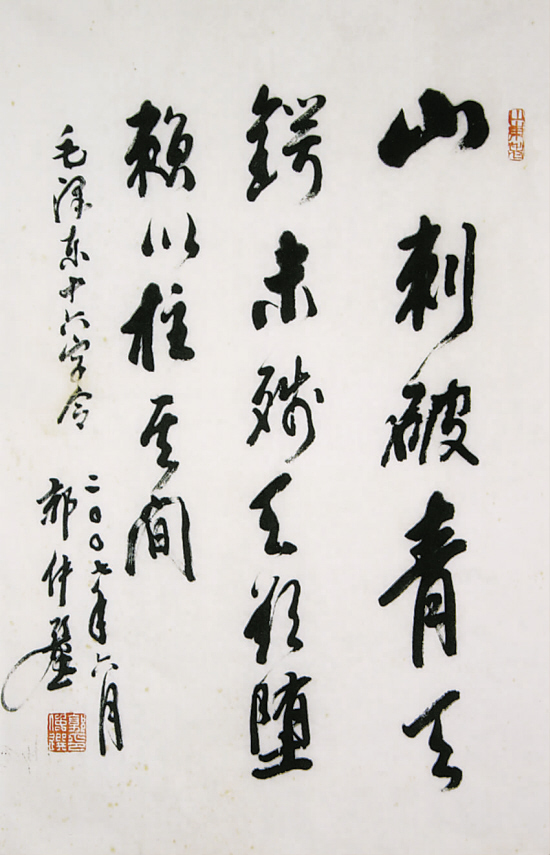 山刺破青天
鍔未残天欲堕
赖以柱其间
毛泽东十六字令
二〇〇七年六月
郭仲選